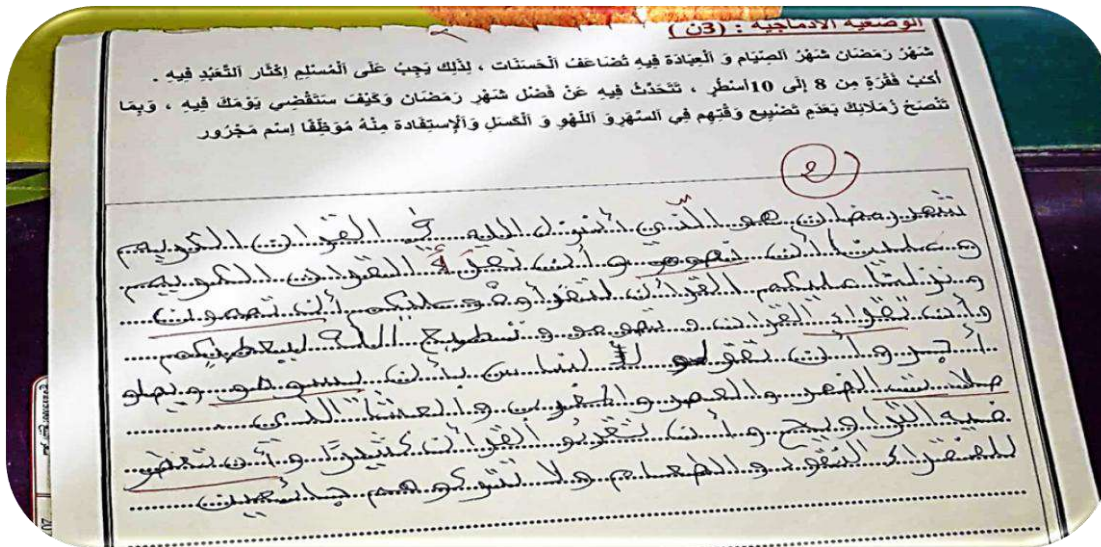 الوضعية الادماجية : (3ن)
شَهْرُ رَمَضَان شَهْرُ الصِّيَام وَ الْعِبَادَة فِيهِ تُضَاعَفُ الْحَسَنَات ، لِذَلِكَ يَجِبُ عَلَى الْمُسْلِمِ إِكْثَار التَّعَبُّدِ فِيهِ .
أكتبْ فَقْرَة مِن 8 إلَى 10أسْطُر ، تَتَحَدَّثُ فِيهِ عَنْ فَضْل شَهْرِ رَمَضَان وَكَيْفَ سَتَقْضِي يَوْمَكَ فِيهِ ، وَبِمَا
تَنْصَحُ زُمَلَائِكَ بِعَدَمِ تَضْيِيع وَقْتِهِم فِي السَّهَرِوَ اللَّهْوِ وَ الْكَسَلِ وَالْإستِفَادة مِنْهُ مُوَظِّفًا إسْم مَجْرُور
2
شهر رمضان هو الذي أنزل الله في القران الكريم
و علينا أن نصومو و أن نقرأة القران الكريم
ونزلت عليكم القرأن لتقرأوه و عليكم أن تصمون
وأن تقراء القران و تصومو و تطيع الله ليعطيكم
أجر و أن تقولو لناس بأن يسومو ويصلو
صلات الضهر والعصر والمغرب والعشا الذي
فيه التراويح و أن تقرئو القرأن كثيرًا و أن تعطو
للفقراء النقود و الطعام ولا تتركوهم جائعين